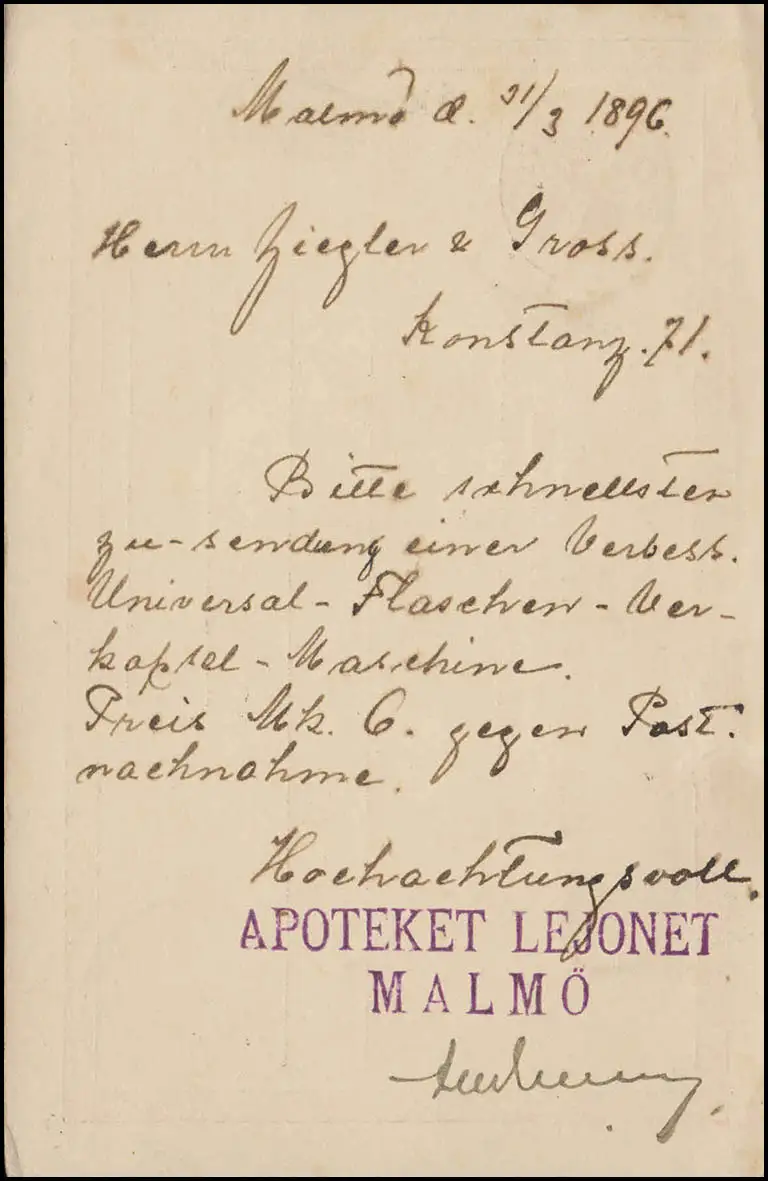 Malmö d. 31/3 1896.
Herrn Ziegler & Gross.
Konstanz. 71.
Bitte schnellsten
zu-sendung einer Verbess.
Universal-Flaschen-Ver-
kapsel-Maschine.
Preis Mk. 6. gegen Post.
nachnahme.
Hochachtungsvoll.
APOTEKET LEJONET
MALMÖ